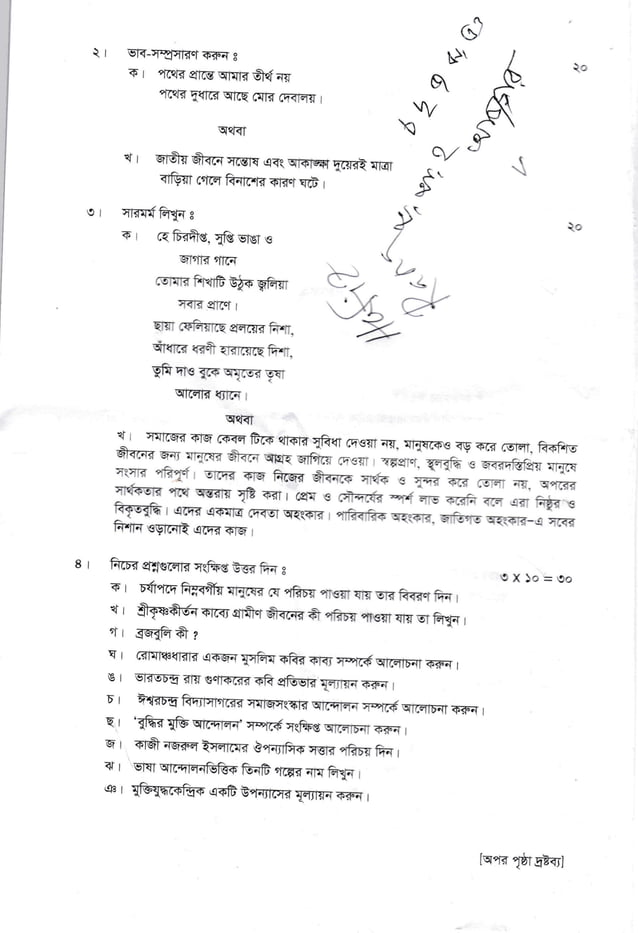 ২। ভাব-সম্প্রসারণ করুন : ২০
ক। পথের প্রান্তে আমার তীর্থ নয়
পথের দুধারে আছে মোর দেবালয়।
অথবা
খ। জাতীয় জীবনে সন্তোষ এবং আকাঙ্ক্ষা দুয়েরই মাত্রা
বাড়িয়া গেলে বিনাশের কারণ ঘটে।
৩। সারমর্ম লিখুন : ২০
ক। হে চিরদীপ্ত, সুপ্তি ভাঙা ও
জাগার গানে
তোমার শিখাটি উঠুক জ্বলিয়া
সবার প্রাণে।
ছায়া ফেলিয়াছে প্রলয়ের নিশা,
আঁধারে ধরণী হারায়েছে দিশা,
তুমি দাও বুকে অমৃতের তৃষা
আলোর ধ্যানে।
অথবা
খ। সমাজের কাজ কেবল টিকে থাকার সুবিধা দেওয়া নয়, মানুষকেও বড় করে তোলা, বিকশিত
জীবনের জন্য মানুষের জীবনে আগ্রহ জাগিয়ে দেওয়া। স্বল্পপ্রাণ, স্থূলবুদ্ধি ও জবরদস্তিপ্রিয় মানুষে
সংসার পরিপূর্ণ। তাদের কাজ নিজের জীবনকে সার্থক ও সুন্দর করে তোলা নয়, অপরের
সার্থকতার পথে অন্তরায় সৃষ্টি করা। প্রেম ও সৌন্দর্যের স্পর্শ লাভ করেনি বলে এরা নিষ্ঠুর ও
বিকৃতবুদ্ধি। এদের একমাত্র দেবতা অহংকার। পারিবারিক অহংকার, জাতিগত অহংকার-এ সবের
নিশান ওড়ানোই এদের কাজ।
৪। নিচের প্রশ্নগুলোর সংক্ষিপ্ত উত্তর দিন : ৩ X ১০ = ৩০
ক। চর্যাপদে নিম্নবর্গীয় মানুষের যে পরিচয় পাওয়া যায় তার বিবরণ দিন।
খ। শ্রীকৃষ্ণকীর্তন কাব্যে গ্রামীণ জীবনের কী পরিচয় পাওয়া যায় তা লিখুন।
গ। ব্রজবুলি কী ?
ঘ। রোমাঞ্চধারার একজন মুসলিম কবির কাব্য সম্পর্কে আলোচনা করুন।
ঙ। ভারতচন্দ্র রায় গুণাকরের কবি প্রতিভার মূল্যায়ন করুন।
চ। ঈশ্বরচন্দ্র বিদ্যাসাগরের সমাজসংস্কার আন্দোলন সম্পর্কে আলোচনা করুন।
ছ। ‘বুদ্ধির মুক্তি আন্দোলন’ সম্পর্কে সংক্ষিপ্ত আলোচনা করুন।
জ। কাজী নজরুল ইসলামের ঔপন্যাসিক সত্তার পরিচয় দিন।
ঝ। ভাষা আন্দোলনভিত্তিক তিনটি গল্পের নাম লিখুন।
ঞ। মুক্তিযুদ্ধকেন্দ্রিক একটি উপন্যাসের মূল্যায়ন করুন।
[অপর পৃষ্ঠা দ্রষ্টব্য]